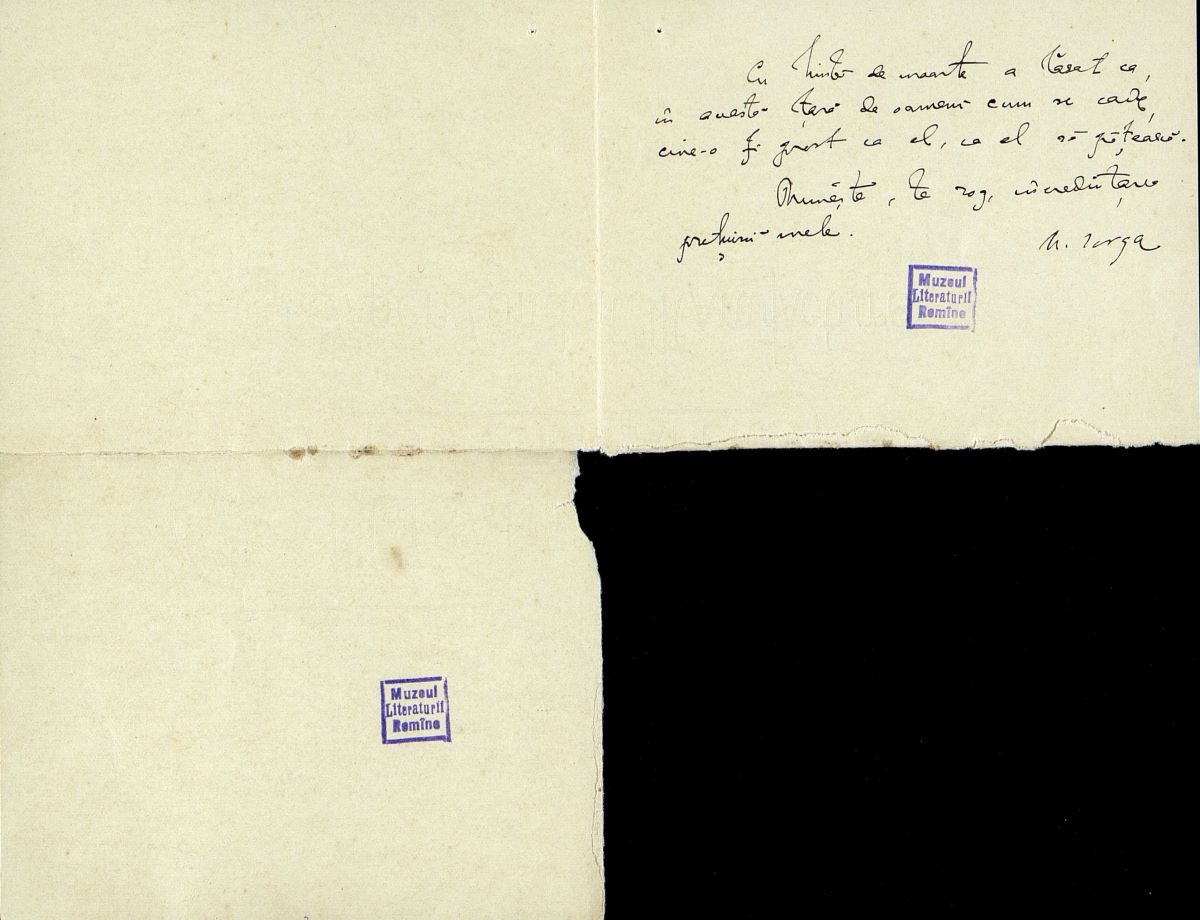 Cu limbă de moarte a lăsat ca,
în această țară de oameni cum se cade,
cine-o fi prost ca el, ca el să pățească.
Primește, te rog, încredințarea
prețuirii mele.
N. Iorga
Muzeul
Literaturii
Romîne
Muzeul
Literaturii
Romîne